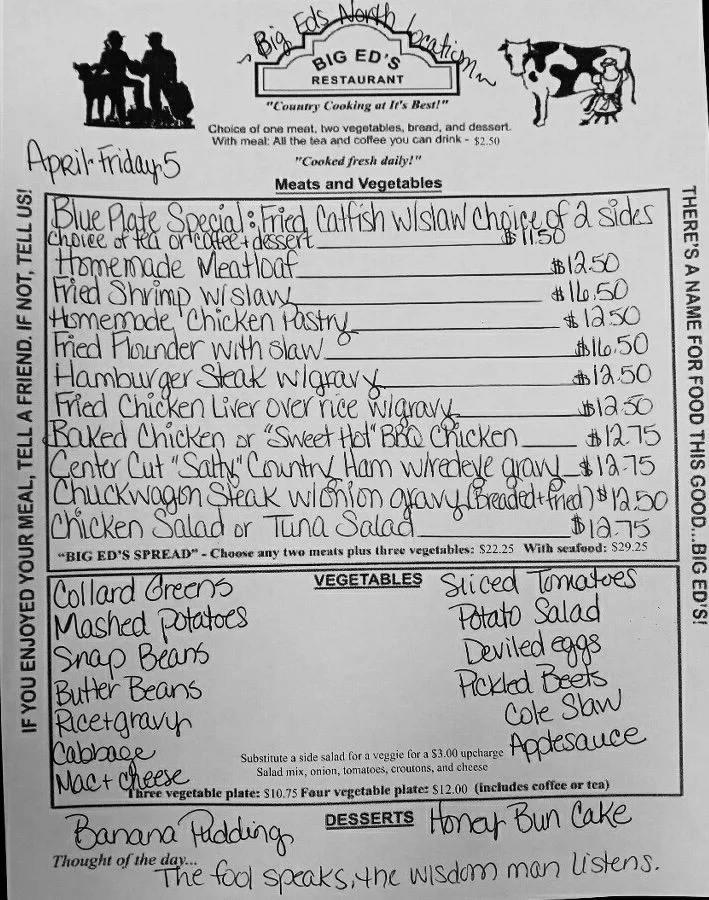 ~ Big Eds North Location ~
BIG ED'S
RESTAURANT
"Country Cooking at It's Best!"
Choice of one meat, two vegetables, bread, and dessert.
With meal: All the tea and coffee you can drink - $2.50
April-Friday 5
"Cooked fresh daily!"
Meats and Vegetables
Blue Plate Special: Fried Catfish w/slaw choice of 2 sides
choice of tea or coffee + dessert $11.50
Homemade Meatloaf $12.50
Fried Shrimp w/slaw $16.50
Homemade Chicken Pastry $12.50
Fried Flounder with slaw $16.50
Hamburger Steak w/gravy $12.50
Fried Chicken Liver over rice w/gravy $12.50
Baked Chicken or "Sweet Hot" BBQ Chicken $12.75
Center Cut "Salty" Country Ham w/redeye gravy $12.75
Chuckwagon Steak w/onion gravy (Breaded + fried) $12.50
Chicken Salad or Tuna Salad $12.75
"BIG ED'S SPREAD" - Choose any two meats plus three vegetables: $22.25 With seafood: $29.25
IF YOU ENJOYED YOUR MEAL, TELL A FRIEND. IF NOT, TELL US!
THERE'S A NAME FOR FOOD THIS GOOD...BIG ED'S!
VEGETABLES
Collard Greens
Mashed potatoes
Snap Beans
Butter Beans
Rice + gravy
Cabbage
Mac + cheese
Sliced Tomatoes
Potato Salad
Deviled eggs
Pickled Beets
Cole Slaw
Applesauce
Substitute a side salad for a veggie for a $3.00 upcharge
Salad mix, onion, tomatoes, croutons, and cheese
Three vegetable plate: $10.75 Four vegetable plate: $12.00 (includes coffee or tea)
DESSERTS
Banana Pudding
Honey Bun Cake
Thought of the day...
The fool speaks, the wisdom man listens.